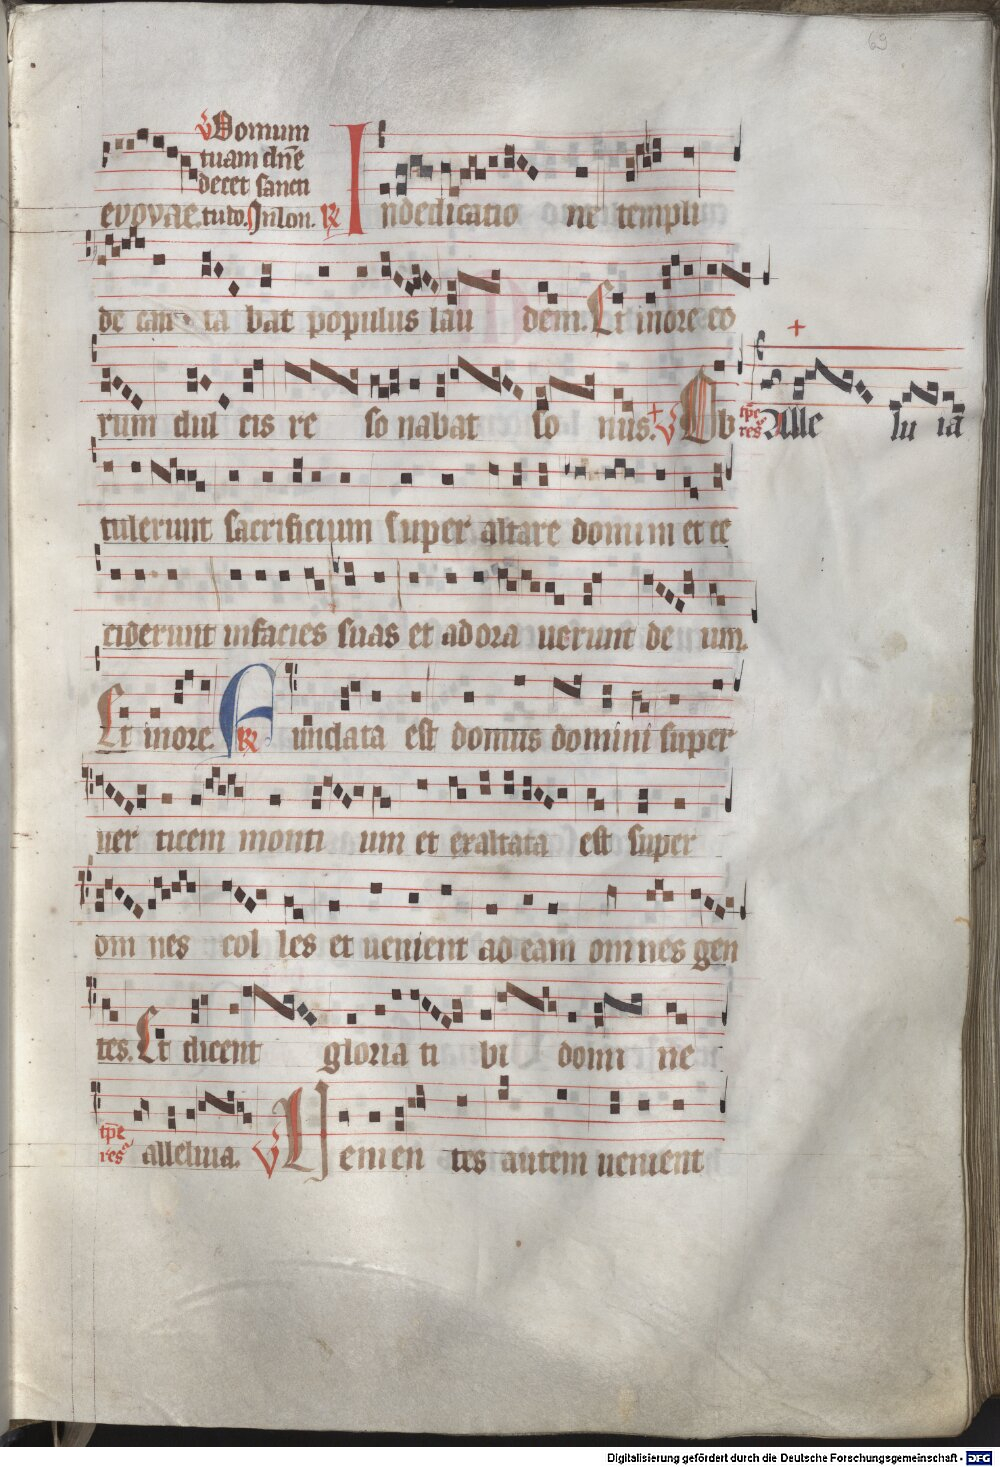 69
℣ Domum
tuam dñe
decet sancti
evovae. tudo. In lon. ℟ In dedicatio ne templi
de can ta bat populus lau dem. Et in ore eo
rum dul cis re so nabat so nus. ℣ Ob
tp̄e res. Alle lu ia
tulerunt sacrificium super altare domini et ce
ciderunt in facies suas et adora uerunt de um.
Et in ore. ℟ Fundata est domus domini super
uer ticem monti um et exaltata est super
om nes col les et uenient ad eam om nes gen
tes. Et dicent gloria ti bi domi ne
tp̄e res. alleluia. ℣ Venien tes autem uenient
Digitalisierung gefördert durch die Deutsche Forschungsgemeinschaft - DFG